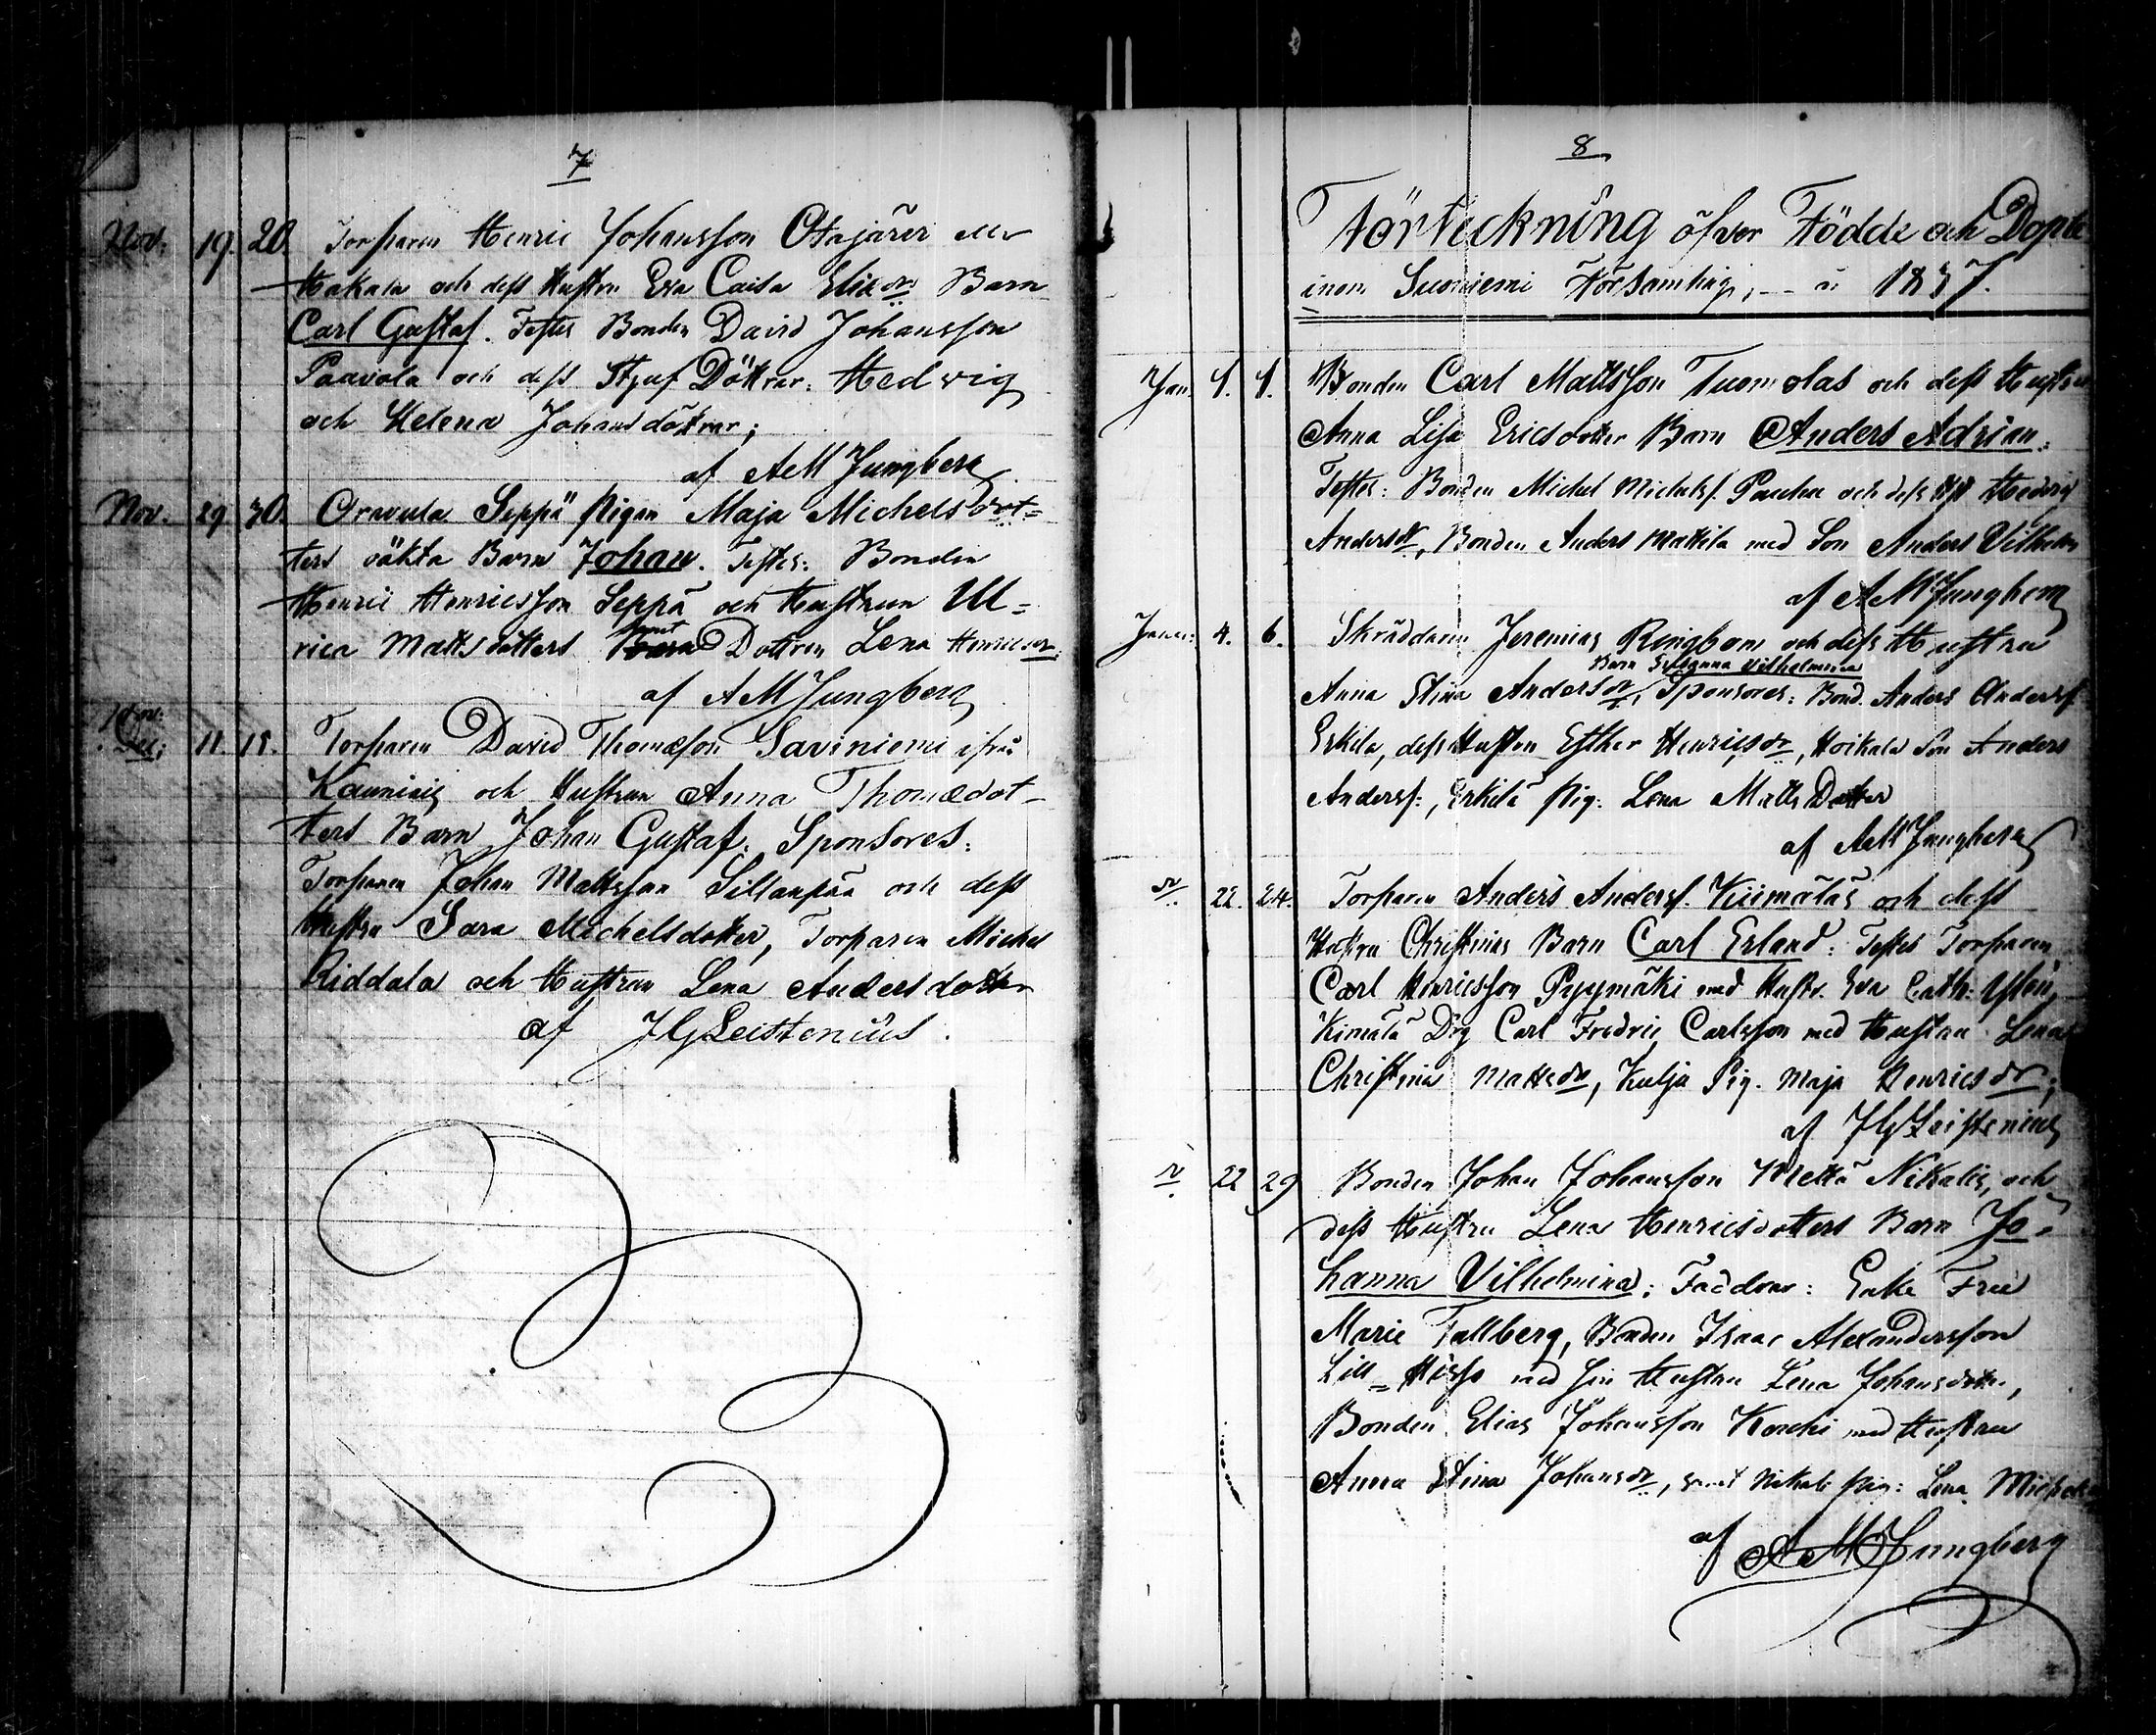 7
Nov. 19. 20. Torparen Henric Johansson Otajärvi eller
Hakala och dess Hustru Eva Caisa Eliædr Barn
Carl Gustaf. Testes Bonden David Johansson
Paavola och dess Styuf Döttrar: Hedvig
och Helena Johansdöttrar;
af AM Ljungberg
Nov. 29 30. Oravula Seppä Pigan Maja Michelsdot-
ters oäkta Barn Johan. Testes: Bonden
Henric Henricsson Seppä och Hustrun Ul-
rica Mattsdotters samt Dottren Lena Henricsdr.
af AM Ljungberg
Dec: 11. 15. Torparen David Thomæson Savniemi ifrån
Kaunisis och Hustrun Anna Thomædot-
ters Barn Johan Gustaf. Sponsores:
Torparen Johan Mattsson Sillanpää och dess
Hustru Sara Michelsdotter, Torparen Michel
Riddala och Hustrun Lena Andersdotter
af JG Leistenius.
8
Förteckning öfver Födde och Döpte
inom Suoniemi Församling, — år 1837.
Jan. 1. 1. Bonden Carl Mattsson Tuomolas och dess Hustru
Anna Lisa Ericsdotter Barn Anders Adrian.
Testes: Bonden Michel Michelss. och dess Hst Hedvig
Andersdr, Bonden Anders Mattila med Son Anders Vilhelm
af AM Ljungberg
4. 6. Skräddaren Jeremias Ringbom och dess Hustru
Barn Susanna Vilhelmina
Anna Stina Andersdr, Sponsores: Bond. Anders Anderss.
Erkila, dess Hustru Esther Henricsdr, Hoikala Son Anders
Anderss:, Erkilä Pig: Lena Matts Dotter
af AM Ljungberg
22. 24. Torparen Anders Anderss. Kiimäläs och dess
Hustru Christinas Barn Carl Erland: Testes Torparen
Carl Henricsson Pyymäki med Hustr. Eva Cath:
Kimälä Drg Carl Fredric Carlsson med Hustru Lena
Christina Mattsdr, Kulja Pig. Maja Henricsdr;
af JG Leistenius
22 29 Bonden Johan Johansson Mellä Nikalis, och
dess Hustru Lena Henricsdotters Barn Jo-
hanna Vilhelmina; Faddrar: Enke Fru
Marie Tallberg, Bonden Isaac Alexandersson
Lill-Hirso med sin Hustru Lena Johansdotter,
Bonden Elias Johansson med Hustru
Anna Stina Johansdr, samt Nikali Pig: Lena
af AM Ljungberg